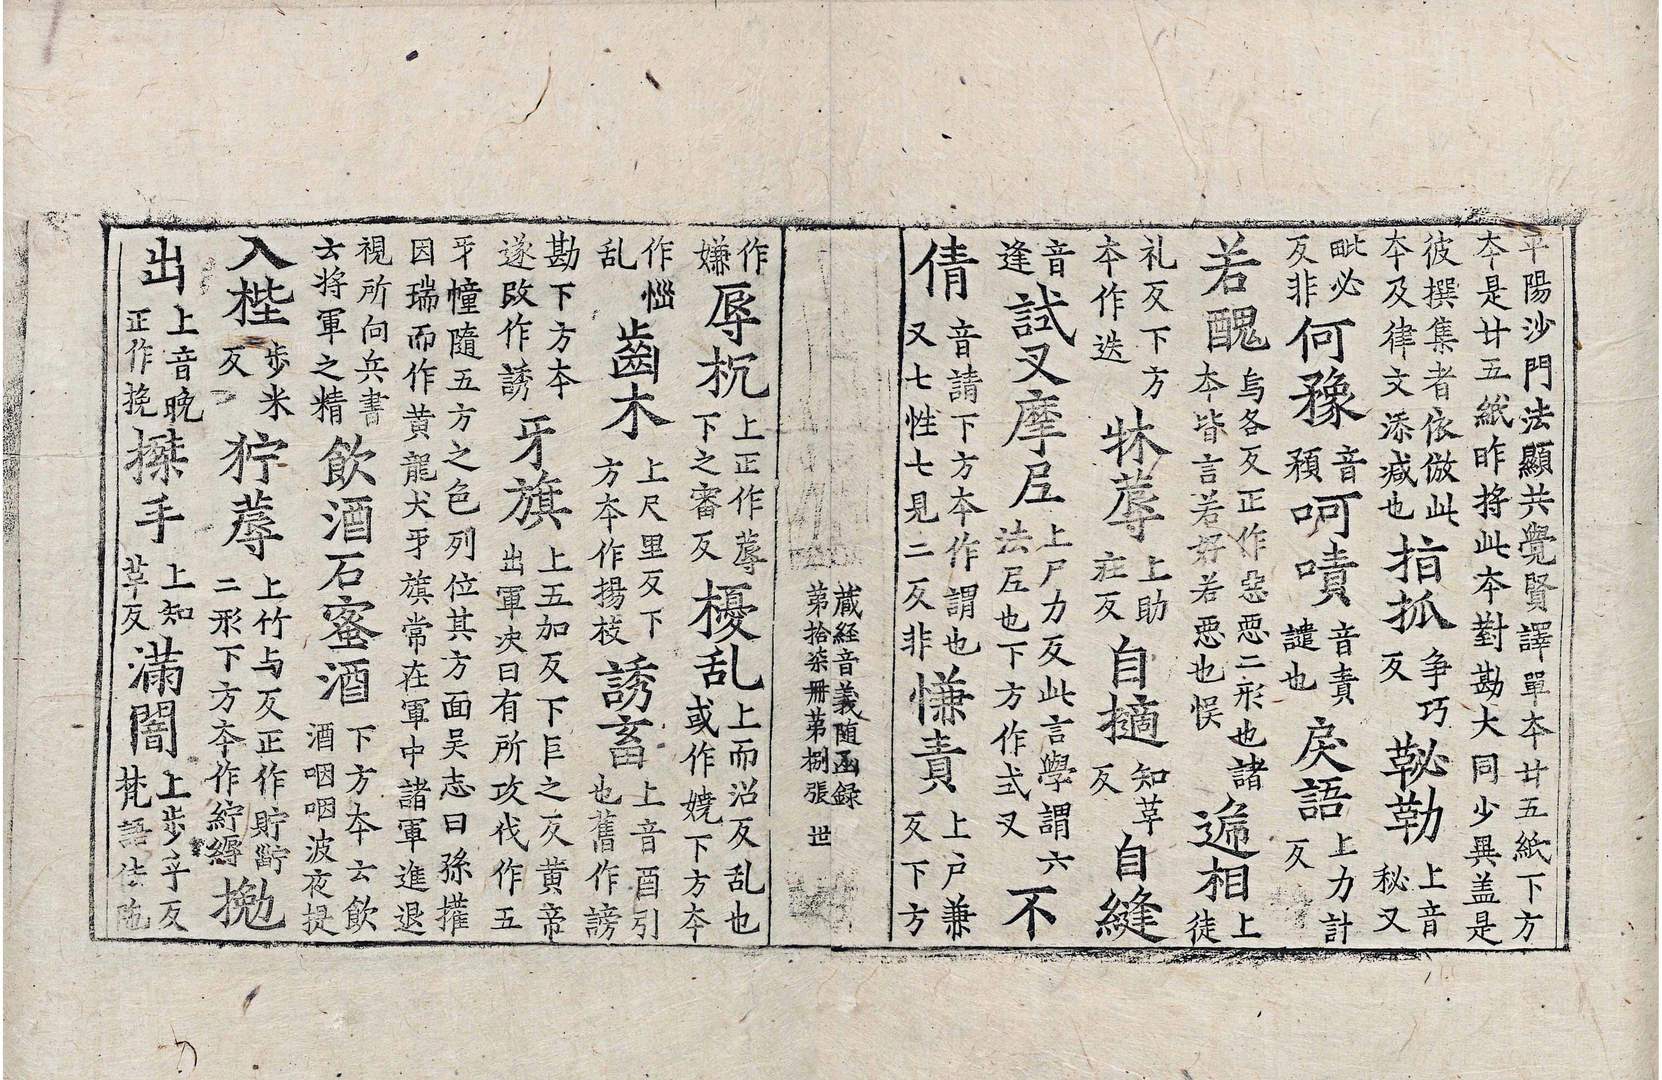 平陽沙門法顯共覺賢譯單本廿五紙下方
本是廿五紙昨将此本對勘大同少異盖是
彼撰集者依倣此
本及律文添減也
指抓
争巧
反
䩛勒
上音
秘又
毗必
反非
何豫
音
預
呵嘖
音責
譴也
戾語
上力計
反
若醜
烏各反正作𢙣惡二形也諸
本皆言若好若惡也悮
遞相
上
徒
礼反下方
本作迭
牀蓐
上助
莊反
自擿
知革
反
自縫
音
逢
試叉摩𡰱
上尸力反此言學謂六
法𡰱也下方作式叉
不
倩
音請下方本作謂也
又七性七見二反非
慊責
上户兼
反下方
藏経音義随函録
第拾柒冊第捌張 世
作
嫌
辱枕
上正作蓐
下之審反
擾乱
上而沼反乱也
或作嬈下方本
作惱
乱
齒木
上尺里反下
方本作揚枝
誘畜
上音酉引
也舊作謗
勘下方本
遂改作誘
牙旗
上五加反下巨之反黄帝
出軍决曰有所攻伐作五
牙幢随五方之色列位其方面吴志曰孫㩲
因瑞而作黄龍犬牙旗常在軍中諸軍進退
視所向兵書
云将軍之精
飲酒石蜜酒
下方本云飲
酒咽咽波夜提
入梐
步米
反
㹥蓐
上竹与反正作貯𣦭
二形下方本作紵縟
㧾
出
上音晚
正作挽
搩手
上知
革反
滿闇
上步乎反
梵語佉陁